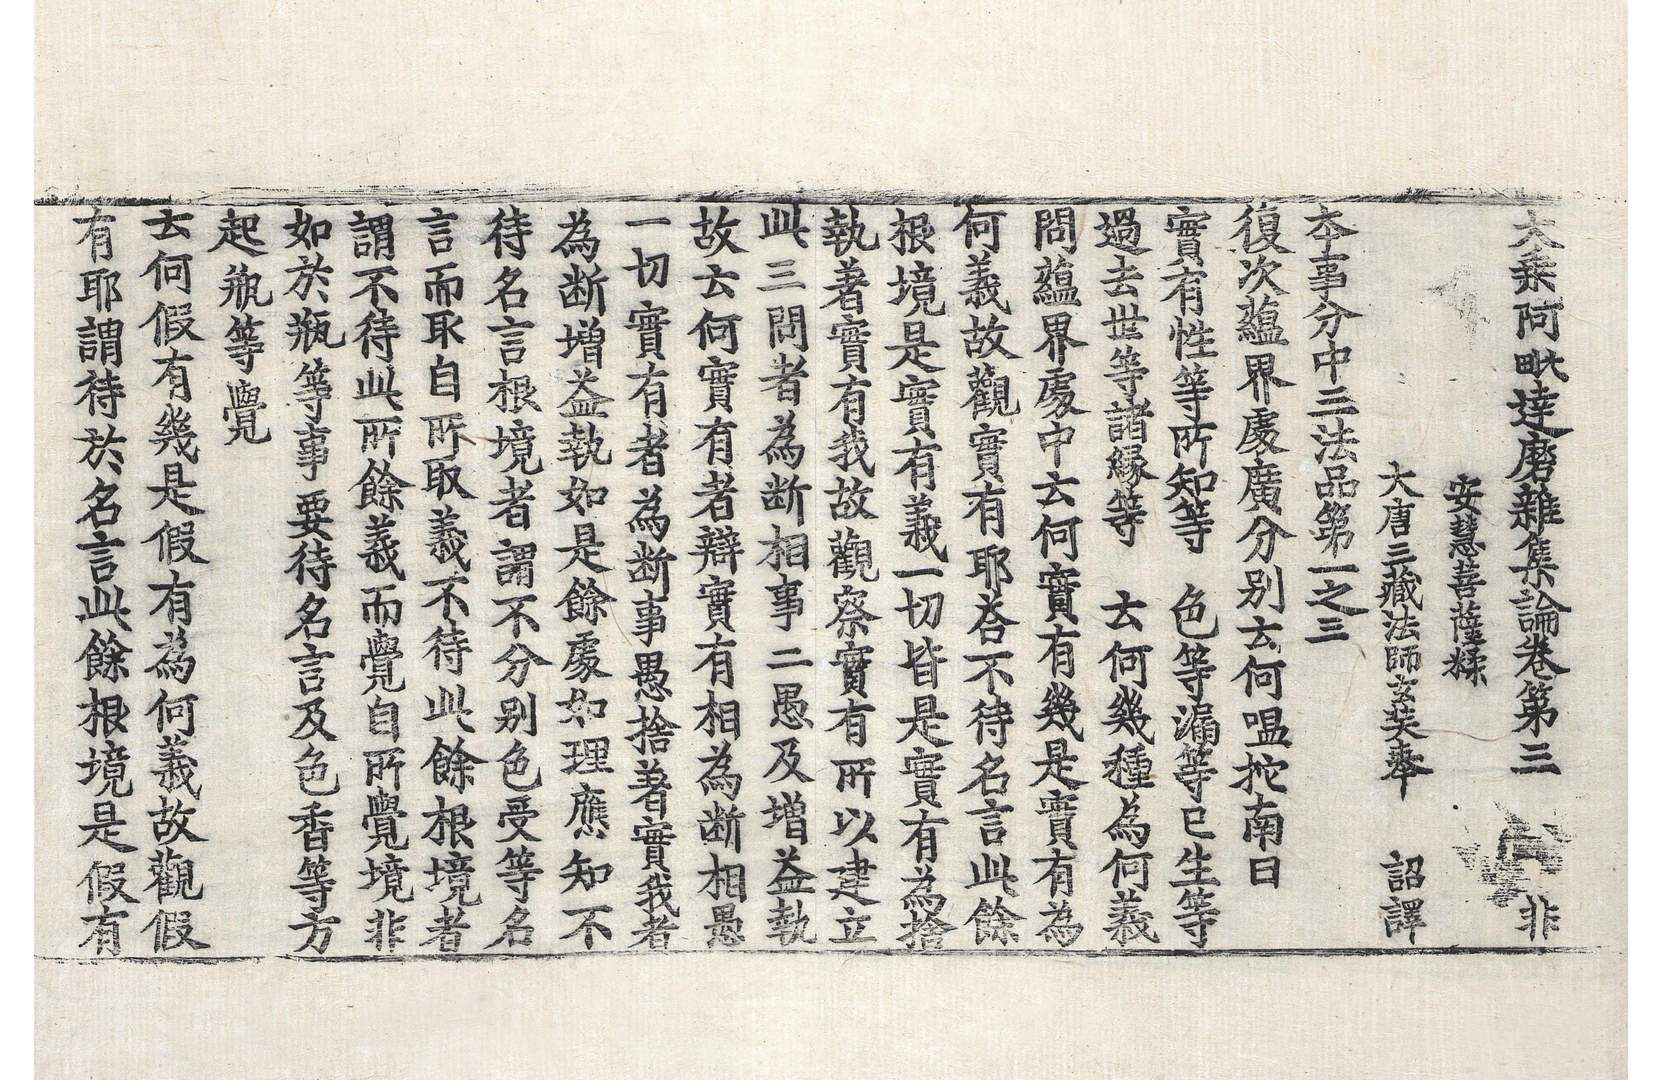 大乘阿毗達磨雜集論卷第三　非
安慧菩薩糅
大唐三藏法師玄奘奉　詔譯
本事分中三法品第一之三
復次蘊界處廣分别云何嗢拕南曰
實有性等所知等　色等漏等已生等
過去世等諸緣等　云何幾種為何義
問蘊界處中云何實有幾是實有為
何義故觀實有耶荅不待名言此餘
根境是實有義一切皆是實有為捨
執著實有我故觀察實有所以建立
此三問者為断相事二愚及增益執
故云何實有者辯實有相為断相愚
一切實有者為断事愚捨著實我者
為断增益執如是餘處如理應知不
待名言根境者謂不分别色受等名
言而取自所取義不待此餘根境者
謂不待此所餘義而覺自所覺境非
如於瓶等事要待名言及色香等方
起瓶等覺
云何假有幾是假有為何義故觀假
有耶謂待於名言此餘根境是假有